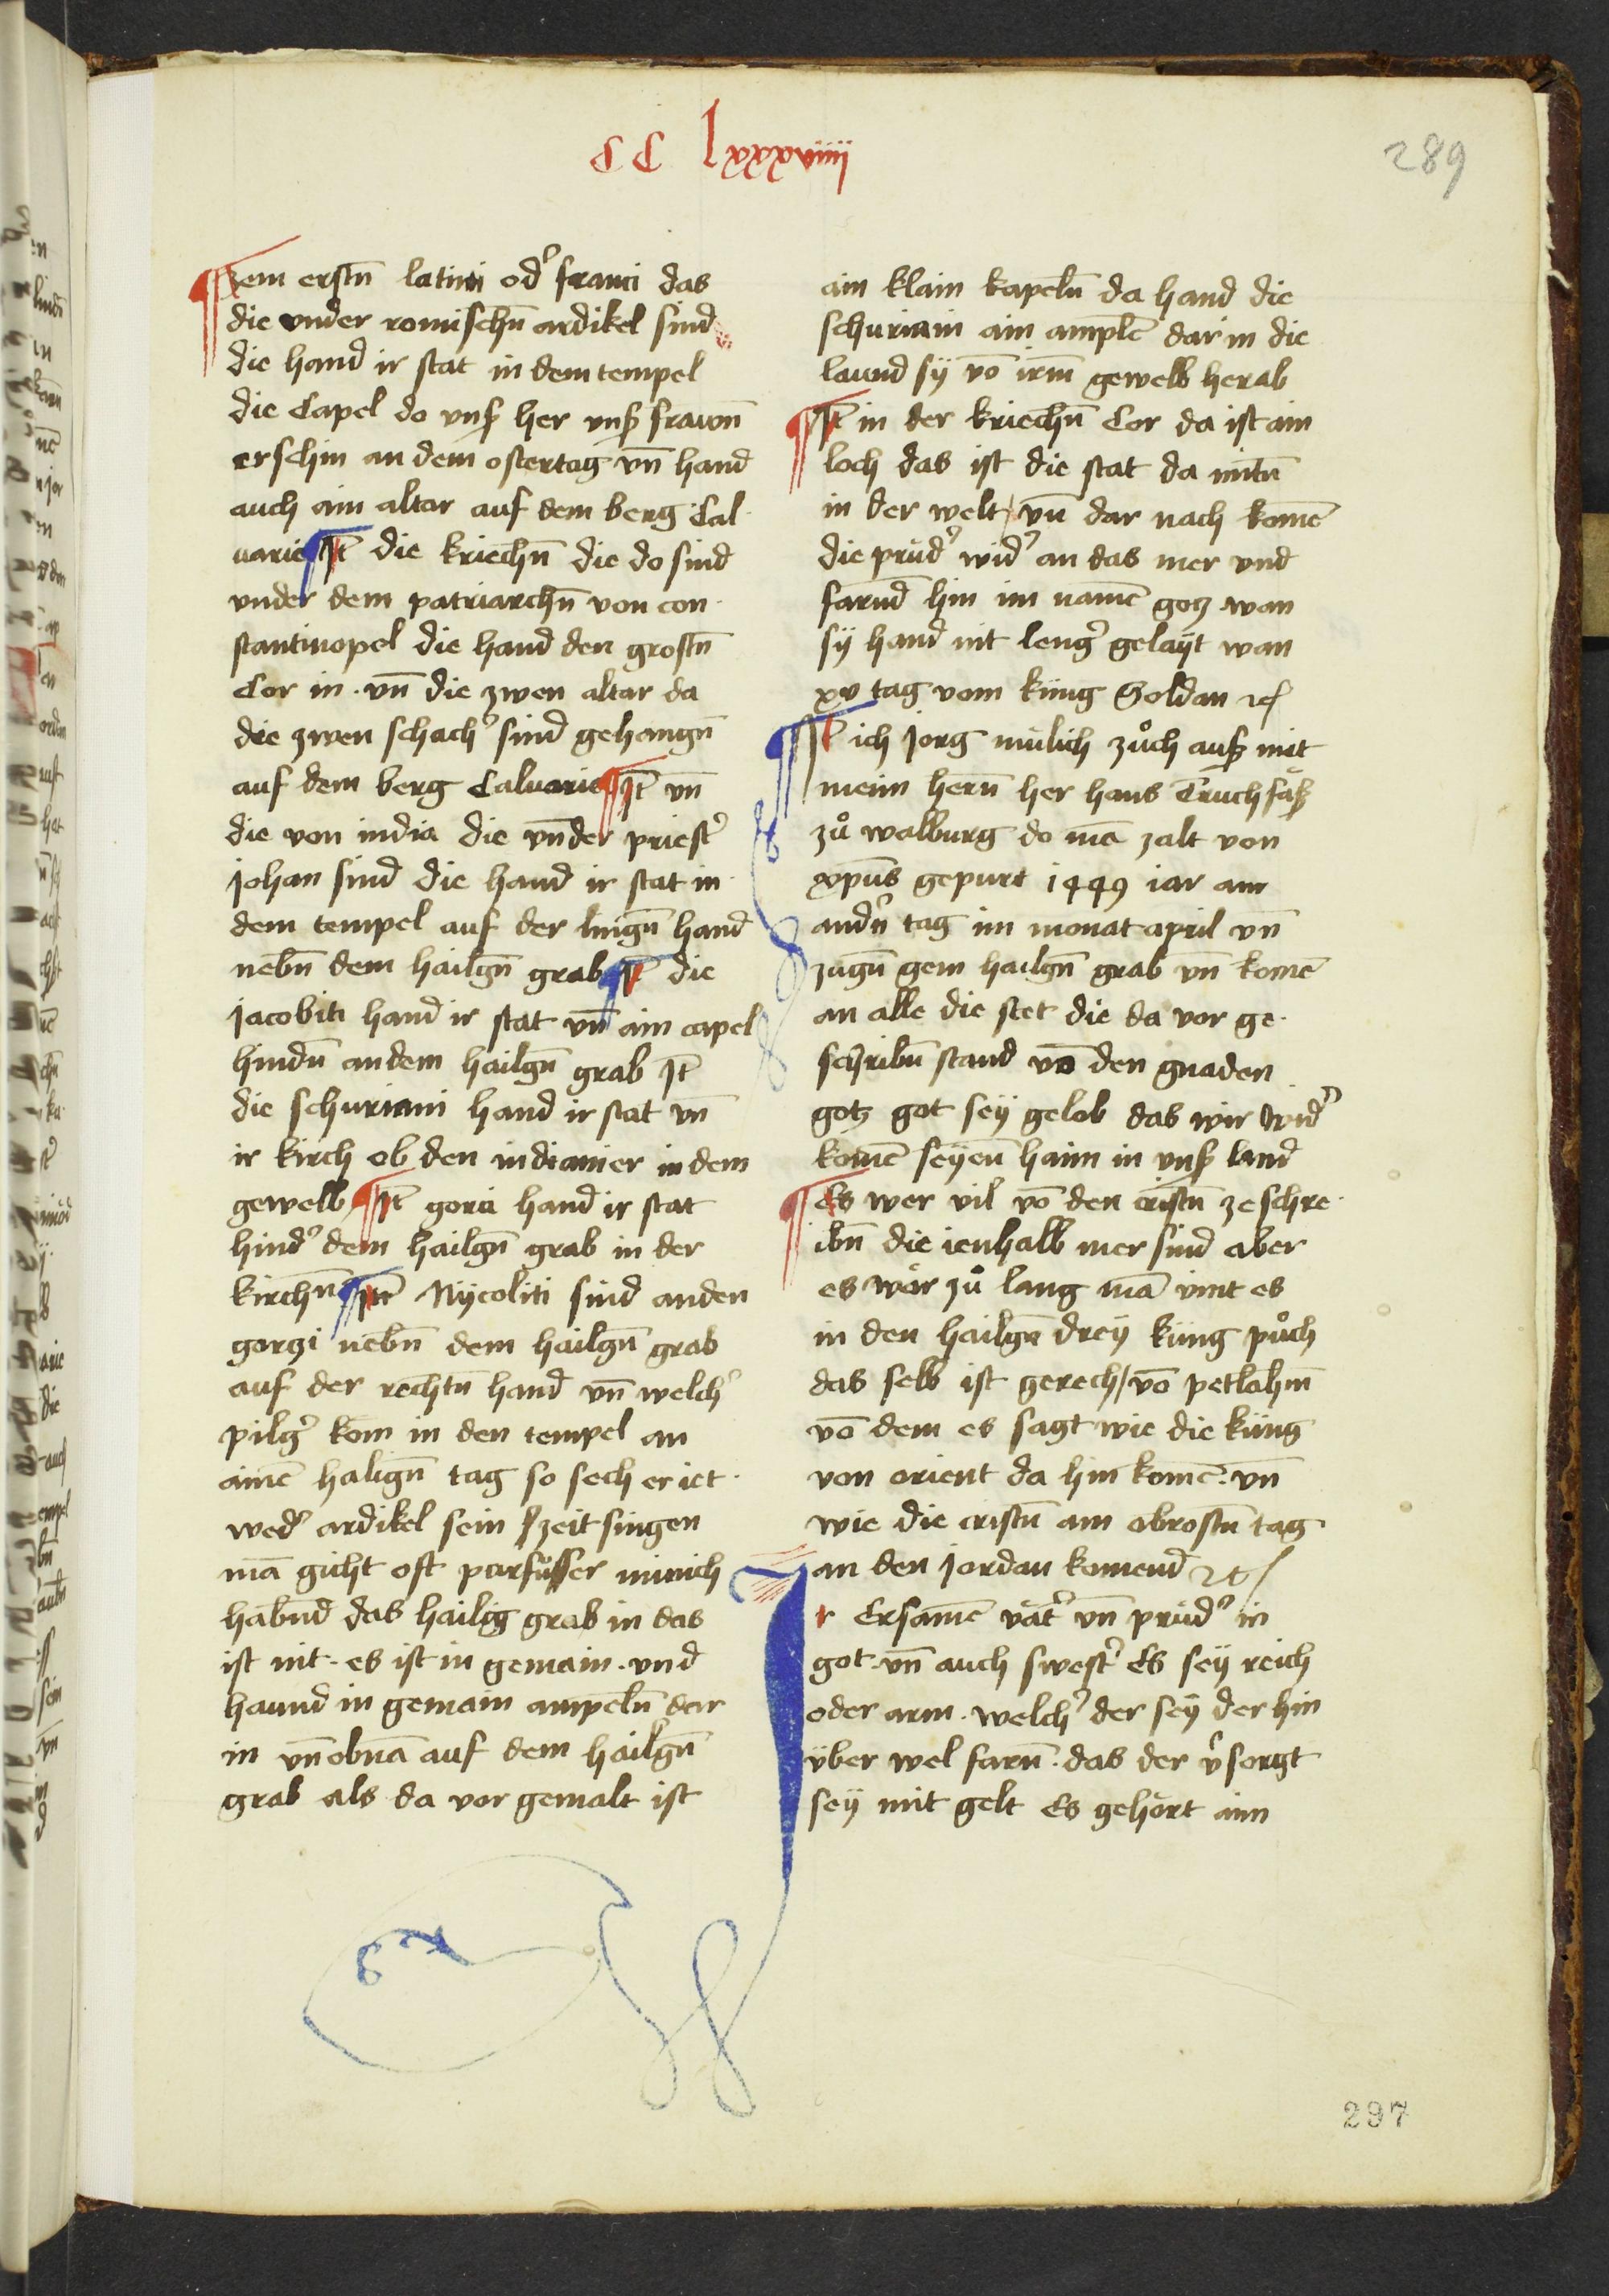 CC lxxxviiij
289
zem erstn̄ latini od᾽ franci das
die vnder romischn̄ ardikel sind
die hand ir stat in dem tempel
die Capel do vnsß her vnsß frawn̄
erschin an dem ostertag vn̄ hand
auch ain altar auf dem berg Cal
uarie It̄ die kriechn̄ die do sind
vnder dem patriarchn̄ von con
stantinopel die hand den grostn̄
Cor in . vn̄ die zwen altar da
die zwen schach᾽ sind gehangn̄
auf dem berg Caluarie It̄ vn̄
die von india die vn̄der priest᾽
johan sind die hand ir stat in
dem tempel auf der lingn̄ hand
nebn̄ dem hailgn̄ grab It̄ die
jacobiti hand ir stat vn̄ ain capel
hindn̄ an dem hailgn̄ grab It̄
die schuriani hand ir stat vn̄
ir kirch ob den indianier in dem
gewelb It̄ gorci hand ir stat
hind᾽ dem hailgn̄ grab in der
kirchn̄ It̄ Nÿcoliti sind an den
gorgi nebn̄ dem hailgn̄ grab
auf der rechtn̄ hand vn̄ welch᾽
pilg᾽ kom in den tempel an
aimē halign̄ tag so sech er iet
wed᾽ ardikel sein zeit singen
mā gicht oft parfüsser münich
habnd̄ das hailig grab in das
ist nit . es ist in gemain . vnd
haund in gemain ampeln̄ dar
in vn̄ obnā auf dem hailgn̄
grab als da vor gemalt ist
ain klain kapeln̄ da hand die
schuriain ain amplē dar in die
laund sÿ vō irm̄ gewelb herab
It̄ in der kriechn̄ Cor da ist ain
loch das ist die stat da mitn̄
in der welt / vn̄ dar nach komē
die prüd᾽ wid᾽ an das mer vnd
farnd̄ hin im namē gotz wan
sÿ hand nit leng᾽ gelaÿt wan
xv tag vom küng Soldan ꝛcʒ
It̄ ich jorg mülich zůch auß mit
meim hern̄ her hans Truchsäß
zů walburg do mā zalt von
xp̄us gepurt 1449 iar am
andn̄᾽ tag im monat april vn̄
zugn̄ gem hailgn̄ grab vn̄ komē
an alle die stet die da vor ge
schribn̄ stand vō den gnaden
gotz got sey gelob das wir wid᾽
komē seÿen̄ haim in vnsß land
Es wer vil vō den cristn̄ ze schre
ibn̄ die ienhalb mer sind aber
es wär zů lang mā vint es
in den hailgn̄ dreÿ küng půch
das selb ist gerech / vō petlahm̄
vō dem es sagt wie die küng
von orient da hin komē . vn̄
wie die cristn̄ am obrostn̄ tag
an den jordan komend ꝛcʒ
Ir Ersamē vät᾽ vn̄ prüd᾽ in
got . vn̄ auch swest᾽ Es seÿ reich
oder arm . welch᾽ der seÿ der hin
vber wel farn̄ . das der v᾽sorgt
seÿ mit gelt Es gehört aim
297